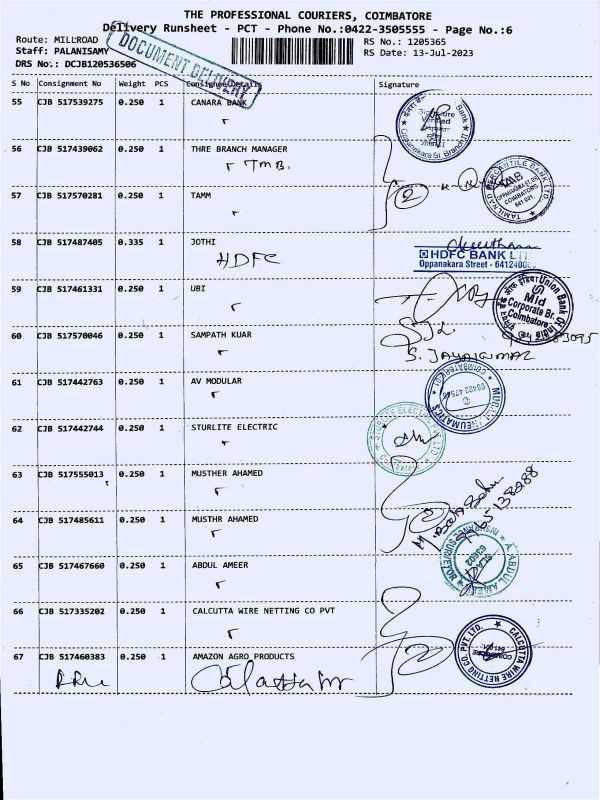 THE PROFESSIONAL COURIERS, COIMBATORE
Delivery Runsheet - PCT - Phone No.:0422-3505555 - Page No.:6
Route: MILLROAD
RS No.: 1205365
Staff: PALANISAMY
RS Date: 13-Jul-2023
DRS No.: DCJB120536506
DOCUMENT DELIVERY
S No Consignment No Weight PCS Consignee Details Signature
55 CJB 517539275 0.250 1 CANARA BANK
Oppanakara St. Branch
56 CJB 517439062 0.250 1 THRE BRANCH MANAGER
TMB.
57 CJB 517570281 0.250 1 TAMM
TAMILNAD MERCANTILE BANK LTD.
TMB
OPPANAKARA ST. BR
COIMBATORE
641 001
58 CJB 517487405 0.335 1 JOTHI
HDFC
HDFC BANK
Oppanakara Street - 
59 CJB 517461331 0.250 1 UBI
Union Bank Of India
Mid
Corporate Br.
Coimbatore
60 CJB 517570046 0.250 1 SAMPATH KUAR
S. JAYAKUMAR
61 CJB 517442763 0.250 1 AV MODULAR
62 CJB 517442744 0.250 1 STURLITE ELECTRIC
STURLITE ELECTRIC
63 CJB 517555013 0.250 1 MUSTHER AHAMED
64 CJB 517485611 0.250 1 MUSTHR AHAMED
65 CJB 517467660 0.250 1 ABDUL AMEER
A. ABDUL AMEER
INSURANCE SURVEYOR
SLA
66 CJB 517335202 0.250 1 CALCUTTA WIRE NETTING CO PVT
CALCUTTA WIRE NETTING CO. PVT. LTD.
COIMBATORE
67 CJB 517460383 0.250 1 AMAZON AGRO PRODUCTS